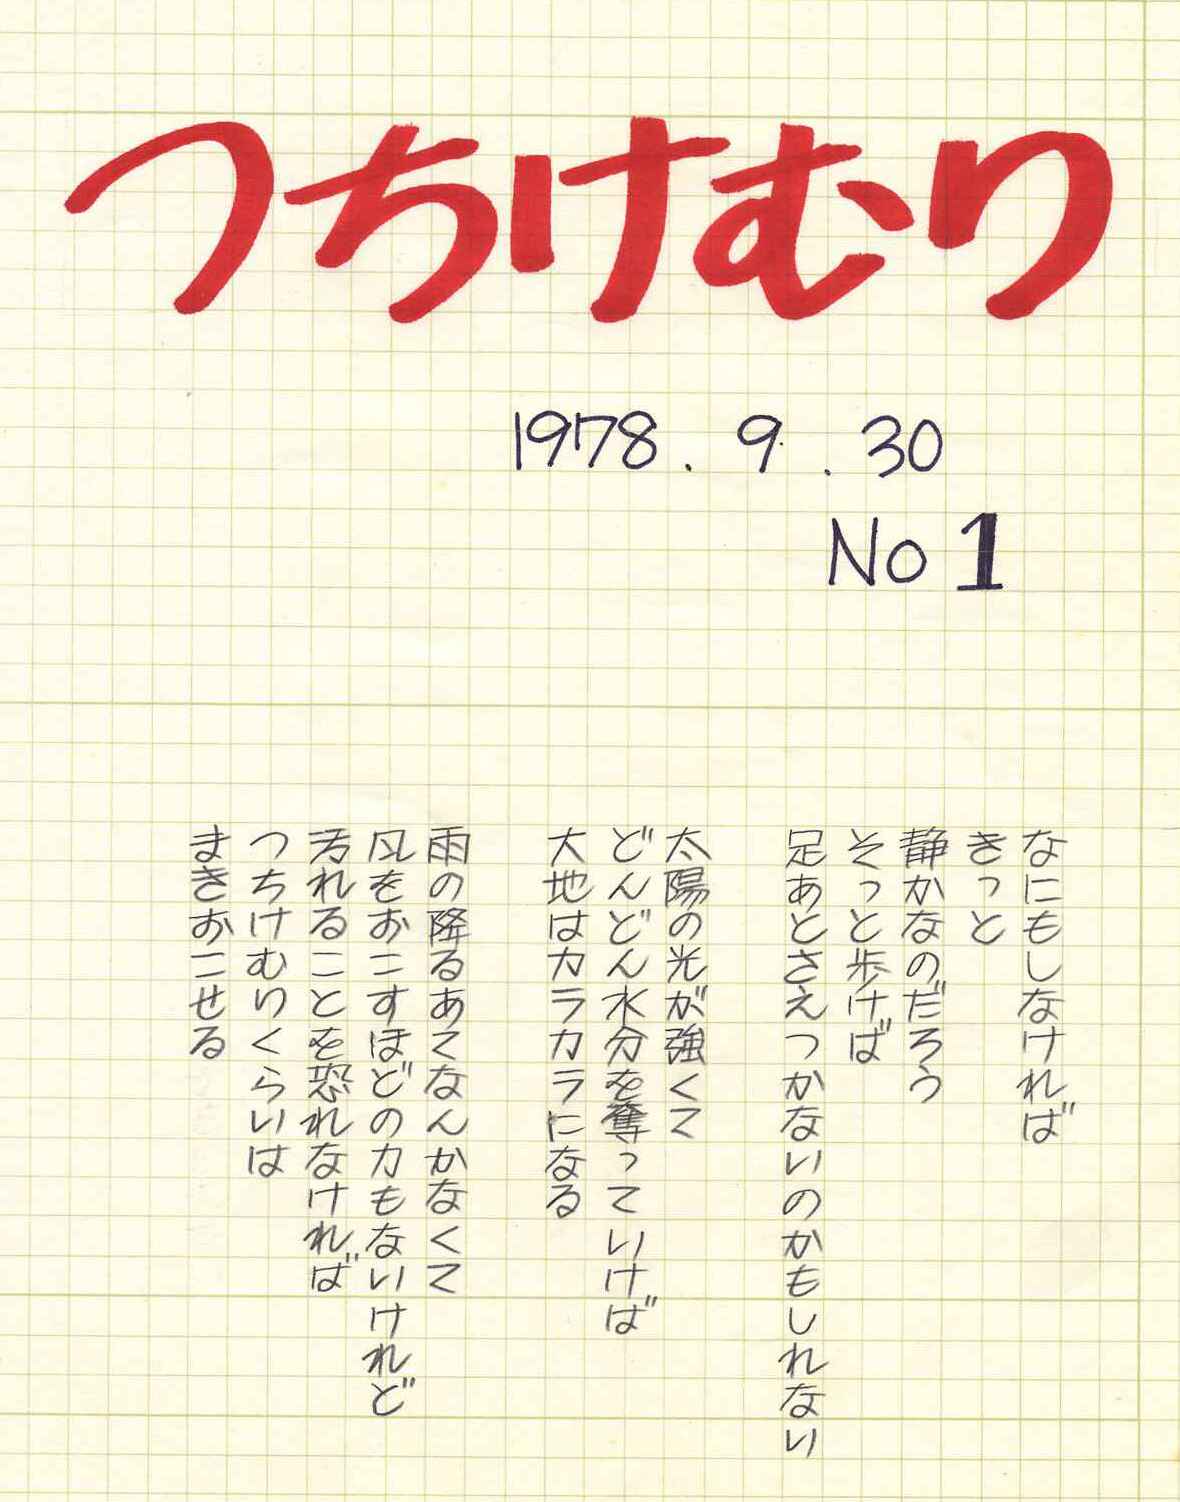 つちけむり
1978.9.30
No 1
なにもしなければ
きっと
静かなのだろう
そっと歩けば
足あとさえつかないのかもしれない
太陽の光が強くて
どんどん水分を奪っていけば
大地はカラカラになる
雨の降るあてなんかなくて
風をおこすほどの力もないけれど
汚れることを恐れなければ
つちけむりくらいは
まきおこせる